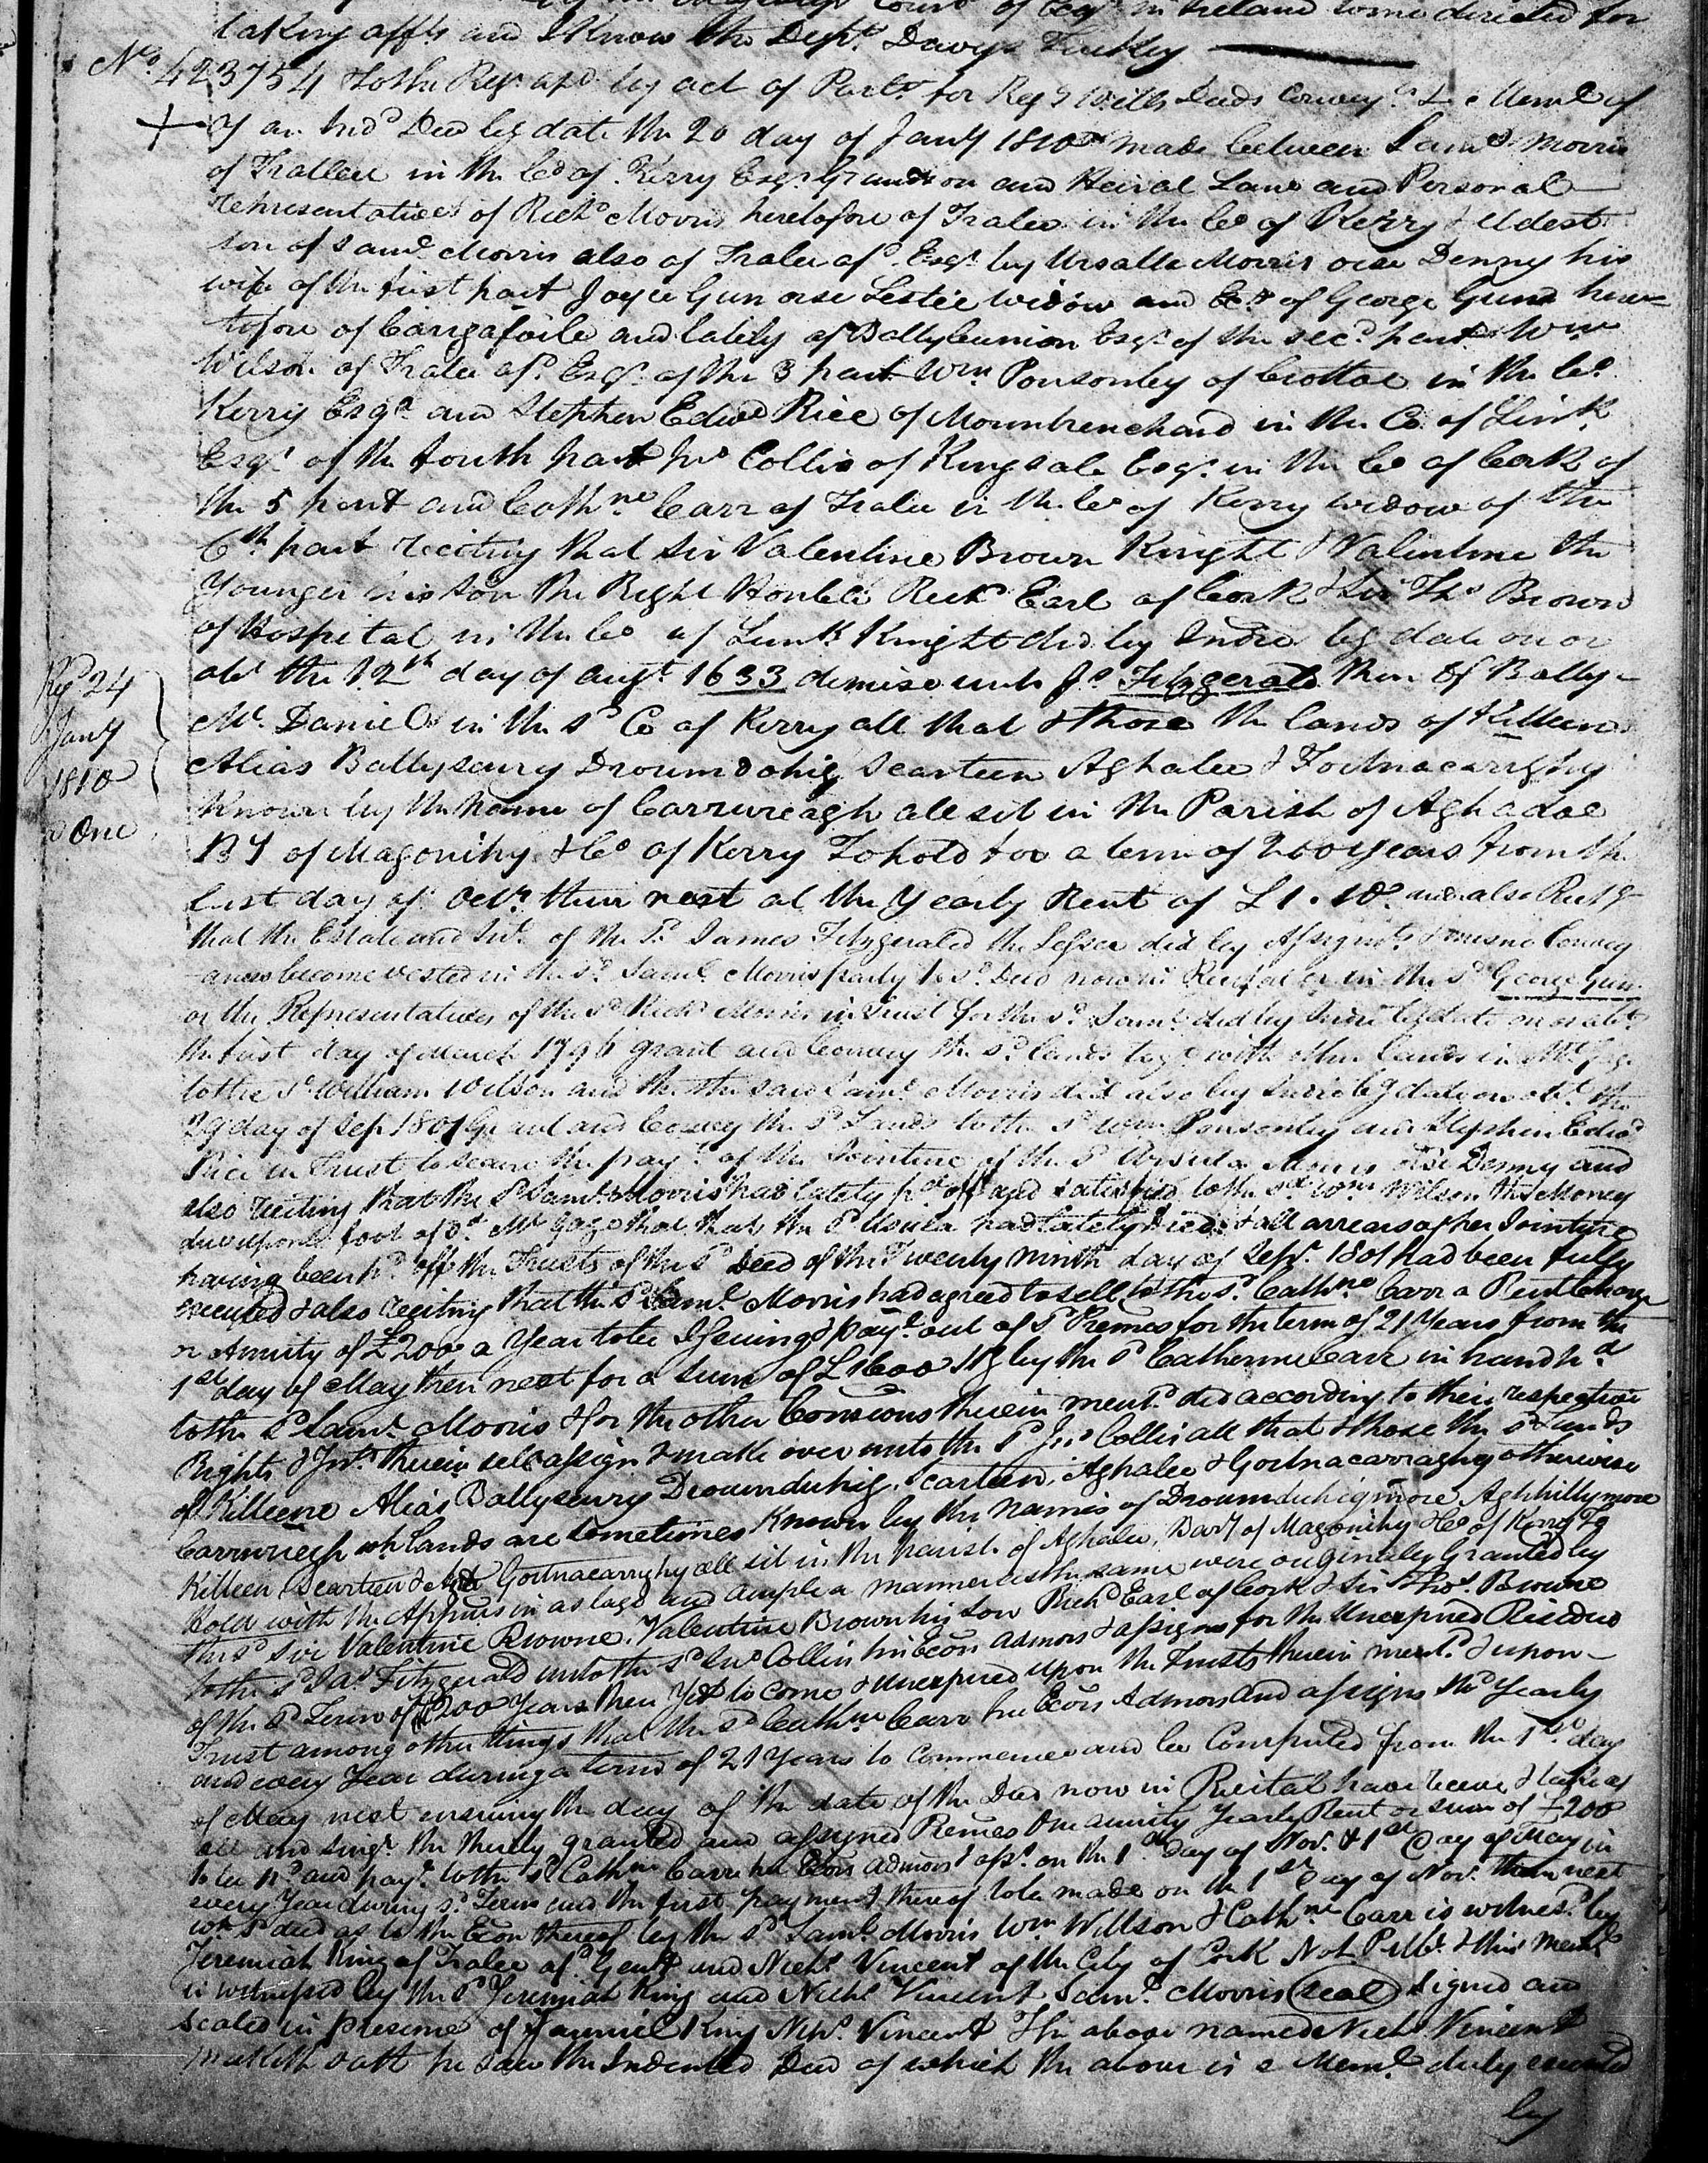 Court of in Ireland to me directed for
taking affts and I know the Dept. Davys Tuckey
No. 423754 To the Regr. apd. by act of Parlt. for Reg g Wills Deeds Convey. &c a Meml of
of an Indd Deed bg date the 20 day of Jany 1810 made between Saml Morris
of Trallee in the Co of Kerry Esqr. Grandson and Heir at Law and Personal
representatives of Richd Morris heretofore of Tralee in the Co of Kerry Eldest
son of Saml Morris also of Tralee afd. Esqr by Ursalla Morris orse Denny his
wife of the first part Joyce Gun orse Leslie widow and Exx of George Gunn here=
tofore of Carrigafoile and lately of Ballybunion Esqr of the secd part Wm
Wilson of Tralee afd. Esqr. of the 3 part Wm Ponsonby of Crottoe in the Co
Kerry Esqr. and Stephen Edwd Rice of Mountrenchard in the Co. of Limk
Esqr of the fourth part Jno Collis of Kingsale Esqr. in the Co of Cork of
the 5 part and Cathne Carr of Tralee in the Co of Kerry widow of the
6th part reciting that Sir Valentine Brown Knight & Valentine the
Younger his son the Right Honble Richd Earl of Cork & Sir Thos Brown
of Hospital in the Co of Limk Knight did by Indre bg date on or
abt the 12th day of augt. 1633 demise unto Js Fitzgerald then of Bally-
Mc Daniel in the sd Co of Kerry all that & those the lands of Killeen
Alias Ballyseury Droumdohig Scarteen Aghalee & Fortnacarrighy
Known by the name of Carrureagh all sit in the Parish of Aghadoe
BY of Magonihy & Co of Kerry To hold for a term of 200 years from the
last day of Octr. then next at the Yearly Rent of £1.10. and also Recitg
that the Estate and Int. of the sd. James Fitzgerald the Lessee did by Assignts & mesne Convey
ances become vested in the sd. Saml Morris party to sd. Deed now in Recital or in the sd George Gun
or the Representatives of the sd Richd Morris in Trust for the sd. Saml did by Indre bg date on or abt.
the first day of March 1796 grant and Convey the sd lands togr with other lands in Mtgage
to the sd William Wilson and that the said Saml Morris did also by Indre bg date on abt. the
29 day of Sep 1801 Grant and Convey the sd Lands to the sd Wm Ponsonby and Stephen Edwd
Rice in Trust to secure the payt. of the Jointure of the sd Ursula Morris orse Denny and
also reciting that the sd Saml Morris had lately pd off and satisfied to the sd Wm Wilson the Money
due upon foot of sd. Mtgage that that the sd Usula had lately died & all arrears of her Jointure
having been pd. off the Trusts of the sd Deed of the Twenty ninth day of Sepr. 1801 had been fully
executed & also reciting that the sd Saml. Morris had agreed to sell to the sd. Cathne Carr a Rent Charge
or Anuity of £200 a Year to be Issuing & payl. out of sd Premes for the term of 21 Years from the
1st day of May then next for a sum of £1600 Stg by the sd Catherine Carr in hand pd
to the sd Saml. Morris & for the other Consons therein mentd. did according to their respective
Rights & Ints. therein sell assign & make over unto the sd Jno Collis all that & those the sd Lands
of Killeene Alias Ballyseury Droumduhig Scarteen Aghalee & Gortnacarraghy otherwise
Carrureegh wh Lands are sometimes known by the names of Droumduhigmore Aghhillymore
Killeen Scarteen & Gortnacarrighy all sit in the parish of Aghalee, Bary of Magonihy & Co of Kerry To
Hold with the Appurts in as large and ample a manner as the same were originally Granted by
the sd Sir Valentine Browne, Valentine Brown his son Richd Earl of Cork & Sir Thos. Browne
to the sd Jas. Fitzgerald unto the sd Jno Collis his Exors Admors & assigns for the Unexpired Residue
of the sd Term of 200 Years then Yet to come & unexpired upon the Trusts therein mentd. & upon
Trust among other things that the sd Cathne Carr her Exors Admors and assigns shd Yearly
and every Year during a term of 21 Years to commence and be Computed from the 1st day
of May next ensuing the day of the date of the Deed now in Recital have receive & take of
all and singr. the thereby granted and assigned Premes One annuity Yearly Rent or sum of £200
to be pd and payl. to the sd Cathne Carr her Exors Admors & asss. on the 1st day of Nov. & 1st Day of May in
every Year during sd. Term and the first payment thereof to be made on the 1st Day of Nov. then next
wh sd deed as to the Exon thereof by the sd Saml. Morris Wm Willson & Cathne Carr is witnesd. by
Jeremiah King of Tralee afd Gent and Nichs Vincent of the City of Cork Not Publ. & this Meml
is witnessed by the sd Jeremiah King and Nichs Vincent Saml. Morris (seal) Signed and
sealed in presence of King Nichs. Vincent The above named Nichs Vincent
maketh oath he saw the Indented Deed of which the above is a Meml. duly executed
by
Rgd 24
Jany
1810
done